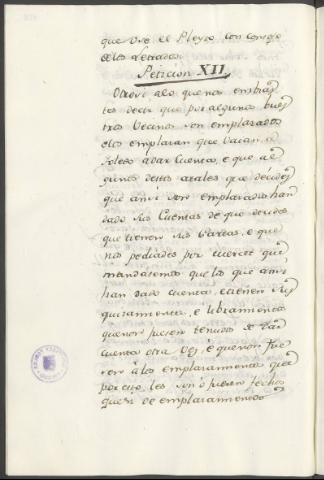 que vio el Pleyto con consejo
de los Letrados.
Peticion XII.
Otrosi alo que nos embia
tes decir que por algunos
tros Vecinos son emplazados
elos emplazan que vaian, a
Toledo adar Cuentas, e que al
gunos destos atales que decides
que ansi son emplazados han
dado sus Cuentas de que decides
que tienen sus Cartas, e que
nos pediades por merced que
mandasemos que los que ansi
han dado cuentas, e tienen
quitamientos, é libramientos
que non fuesen tenudos de dar
cuenta otra vez, é que non fue
sen á los emplazamientos que
por esto les son ó fueren fechos
de emplazamientos